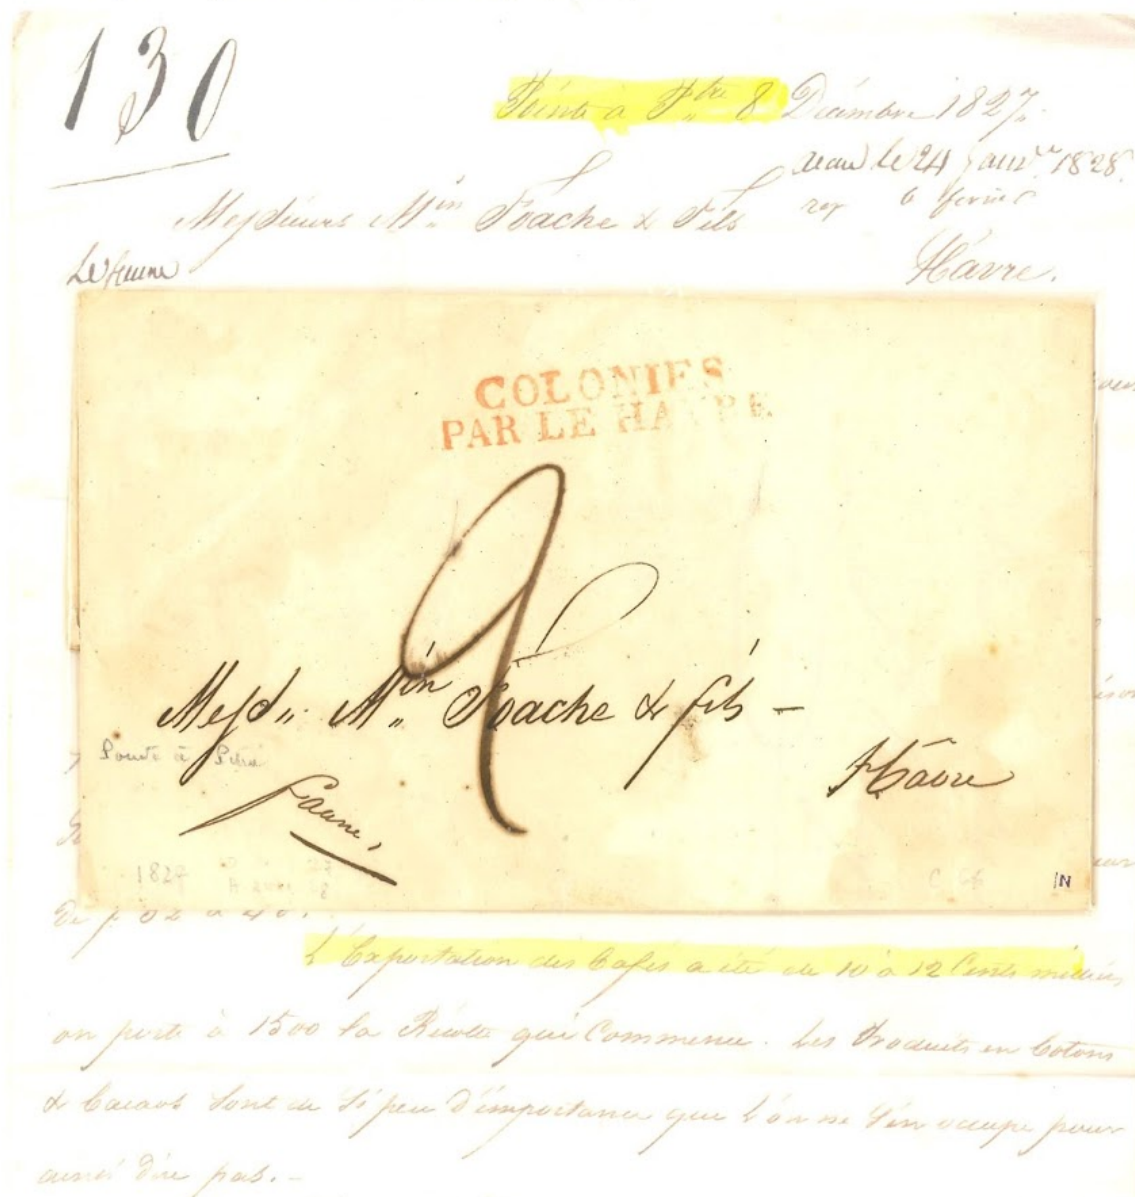 130
Pointe à P.tre 8 Décembre 1827.
recu le 24 janv.er 1828
rep 6 fevrier
Messieurs M.in Foache & Fils
Le faune
Hâvre.
COLONIES
PAR LE HAVRE
2
Messd,, M,,in Foache & fils –
Pointe à Pitre
Hâvre
faune,
1827
IN
L'Exportation des Cafés a été de 10 à 12 Cents milliers
on porte à 1500 la Récolte qui Commence. Les Produits en Cotons
& Cacaos sont de si peu d'importance que l'on ne s'en occupe pour
ainsi dire pas. –